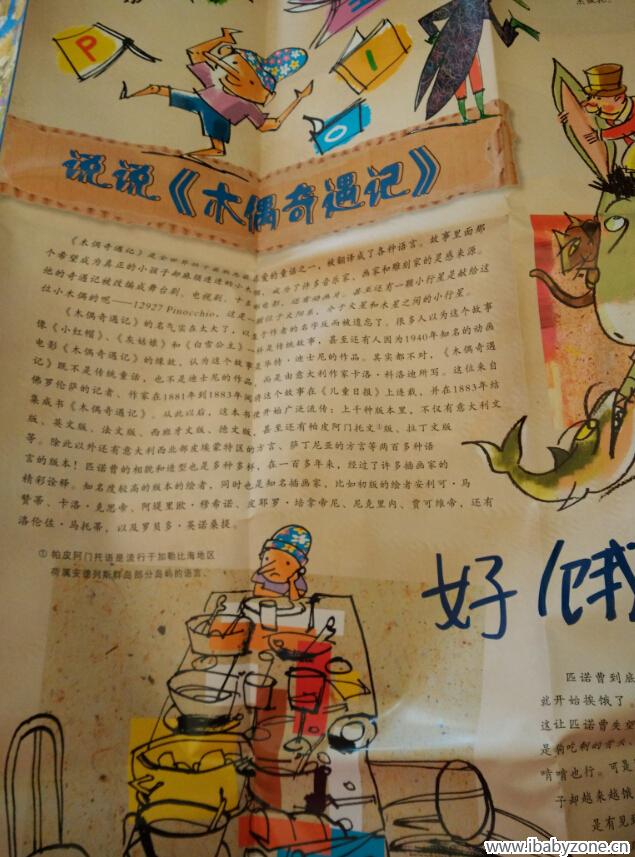 P
I
O
说说《木偶奇遇记》
《木偶奇遇记》是全世界 爱的童话之一，被翻译成了各种语言。故事里面那
个希望成为真正的小孩子却麻烦连连的小木 ，成为了许多音乐家、画家和雕刻家的灵感来源。
他的奇遇记被改编成舞台剧、电视剧、 电影，还有动画片。甚至还有一颗小行星是献给这
位小木偶的呢——12927 Pinocchio，这是一 位于太阳系，介于火星和木星之间的小行星。
《木偶奇遇记》的名气实在太大了，以 于作者的名字反而被遗忘了。很多人以为这个故事
像《小红帽》、《灰姑娘》和《白雪公主》一样是传统故事，甚至还有人因为1940年知名的动画
电影《木偶奇遇记》的缘故，认为这个故事是华特·迪士尼的作品。其实都不对，《木偶奇遇
记》既不是传统童话，也不是迪士尼的作品，而是由意大利作家卡洛·科洛迪所写。这位来自
佛罗伦萨的记者、作家在1881年到1883年间将这个故事在《儿童日报》上连载，并在1883年结
集成书《木偶奇遇记》。从此以后，这本书便开始广泛流传：上千种版本里，不仅有意大利文
版、英文版、法文版、西班牙文版、德文版，甚至还有帕皮阿门托文①版、拉丁文版
等。除此以外还有意大利西北部皮埃蒙特区的方言、萨丁尼亚的方言等两百多种语
言的版本！匹诺曹的相貌和造型也是多种多样，在一百多年来，经过了许多插画家的
精彩诠释。知名度较高的版本的绘者，同时也是知名插画家，比如初版的绘者安利可·马
赞蒂、卡洛·克思帝、阿提里欧·穆希诺、皮耶罗·培拿帝尼、尼克里内、贾可维帝，还有
洛伦佐·马托蒂，以及罗贝多·英诺桑提。
①帕皮阿门托语是流行于加勒比海地区
荷属安德列斯群岛部分岛屿的语言。
好饿
匹诺曹到底
就开始挨饿了。
这让匹诺曹失望
是狗吃剩的骨头
啃啃也行。可是
子却越来越饿
是有见
www.ibabyzone.cn